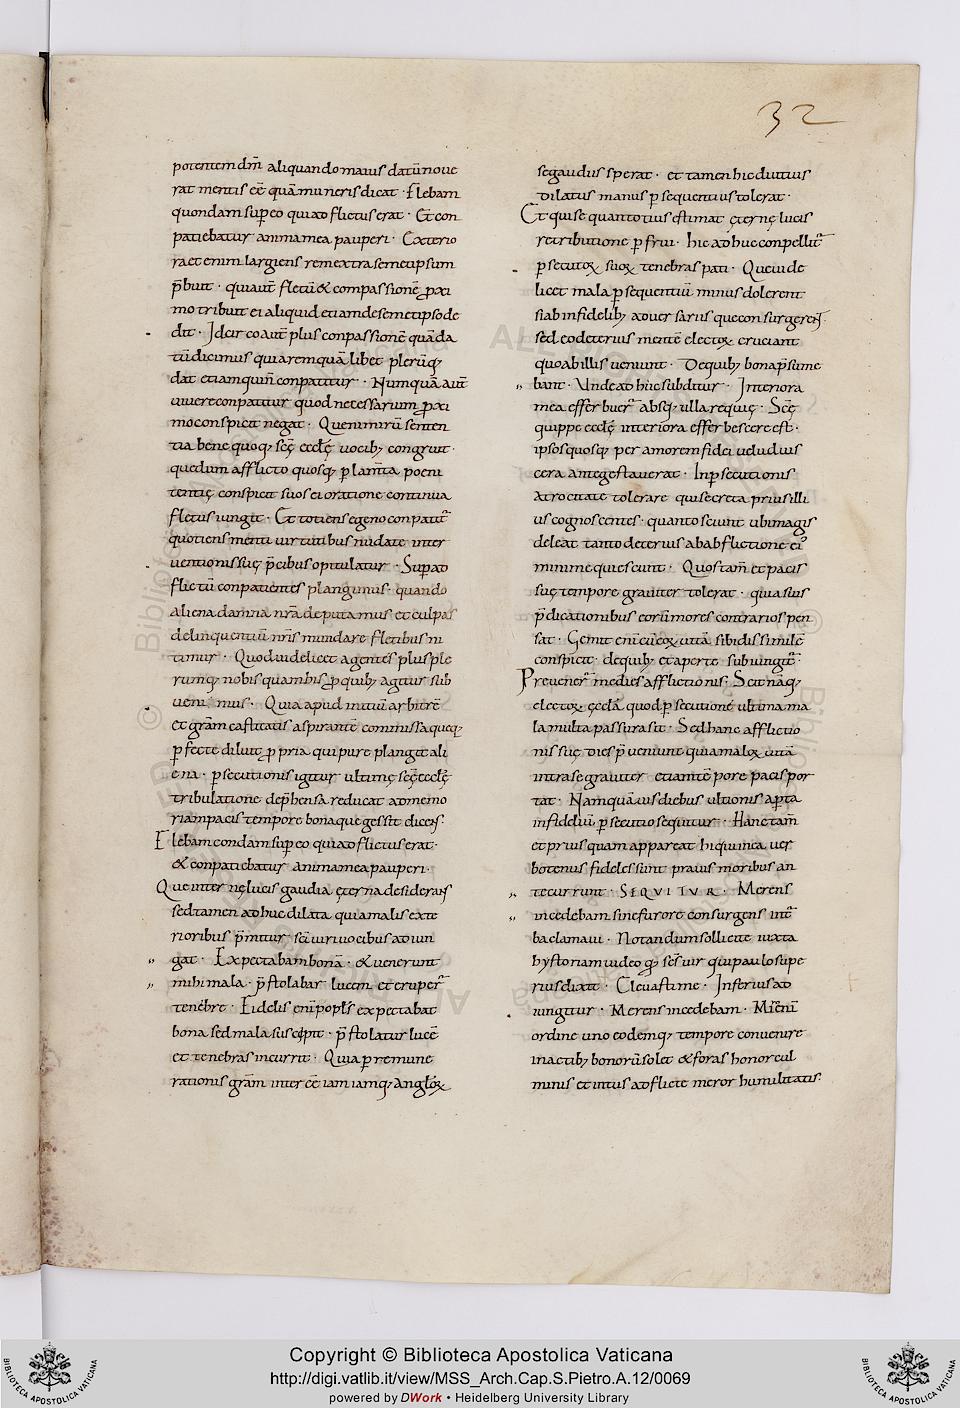 32
potentem dm̄ aliquando maius datū noue
rat mentis eē quā muneris dicat · Flebam
quondam sup eo qui adflictus erat · Et con
patiebatur anima mea pauperi · Exterio
ra et enim largiens rem extra semetipsum
p̄buit · qui aut̄ fletū & compassionē ꝓxi
mo tribuit ei aliquid etiam de semetipso de
dit · Idcirco aut̄ plus conpassionē quā da
tū dicimus quia rem quālibet plerūq;
dat etiam qui n̄ conpatitur · Numquā aut̄
uiuere conpatitur quod necessarium ꝓxi
mo conspicit negat · Que nimirū senten
tia bene quoq; scę ecclę uocib; congruit ·
que dum afflicto quosq; p lam̄ta poeni
tentię conspicit suos ei oratione continua
fletus iungit · Et totiens egeno conpatit᷑
quotiens mentu uirtutibus nudate inter
uentionis suę p̄cibus opitulatur · Sup ad
flictū conpatientes plangimus · quando
aliena damna nr̄a deputamus et culpas
delinquentiū nr̄is mundare fletibus ni
timur · Quod uidelicet agentes plus ple
rumq; nobis quam his ꝓ quib; agitur sub
uenimus · Quia apud intimū arbitrē
et gr̄am castitatis aspirantē commissa queq;
pfecte diluit ꝓpria qui pure plangit ali
ena · psecutionis igitur ultimę scę ecclę
tribulatione dep̄hensa reducat ad memo
riam pacis tempore bona que gessit dicens ·
Flebam condam sup eo qui adflictus erat ·
& conpatiebatur anima mea pauperi ·
Que inter nę lucis gaudia ęterna desiderans
sed tamen adhuc dilata quia malis exte
rioribus p̄mitur sc̄i uiri uocibus adiun
gat · Expectabam bona · & uenerunt
mihi mala · p̄stolabar lucem et erupert᷑
tenebre · Fidelis eni popl's expectabat
bona sed mala suscepit · p̄stolatur lucē
et tenebras incurrit · Quia p remune
rationis gr̄am inter eē iam iamq; angloꝝ
se gaudiis sperat · et tamen hic diutius
dilatus manus psequentius tolerat ·
Et qui se quantotius estimat ęternę lucis
retributione pfrui · hic adhuc conpellit᷑
psecutoꝝ suoꝝ tenebras pati · Que uide
licet mala psequentiū minus dolerent
si ab infidelib; aduersariis que consurgerent ·
sed eo deterius mentē electoꝝ cruciant
quo ab illis ueniunt · De quib; bona p̄sume
bant · Unde adhuc subditur · Interiora
mea efferbuer᷑ absq; ulla requię · Scę
quippe ecclę interiora efferbescere est ·
ipsos quosq; per amorem fidei uelud uis
cera ante gestauerat · In psecutionis
atrocitate tolerare qui secreta prius illi
us cognoscentes · quanto sciunt ubi magis
deleat tanto deterius ab abflictione ei᷒
minime quiescunt · Quos tam̄ et pacis
suę tempore grauiter tolerat · quia suis
p̄dicationibus eorū mores contrarios pen
sat · Gemit eni cū eoꝝ uitā sibi dissimilē
conspicit · de quib; et aperte subiungit᷑ ·
Preuener᷑ me dies afflictionis · Scit nāq;
electoꝝ ęcclā quod psecutione ultima ma
la multa passura sit · Sed hanc afflictio
nis suę dies p̄ueniunt quia maloꝝ uitā
intra se grauiter etiam tēpore pacis por
tat · Nam quāuis diebus ultionis apta
infideliū psecutio sequitur · Hanc tam̄
et priusquam appareat hi qui iuxta uer
botenus fideles sunt prauis moribus an
tecurrunt · SEQVITVR · Merens
incedebam sine furore consurgens in t᷑
ba clamaui · Notandum sollicite iuxta
hystoriam uideo qd̄ sc̄s uir qui paulo supe
rius dixit · Eleuasti me · Inferius ad
iungitur · Merens incedebam · Mir eni
ordine uno eodemq; tempore conuenire
in actib; bonorū solet & foris honor cul
minis et intus adflicte meror humilitatis ·
Copyright © Biblioteca Apostolica Vaticana
http://digi.vatlib.it/view/MSS_Arch.Cap.S.Pietro.A.12/0069
powered by DWork • Heidelberg University Library